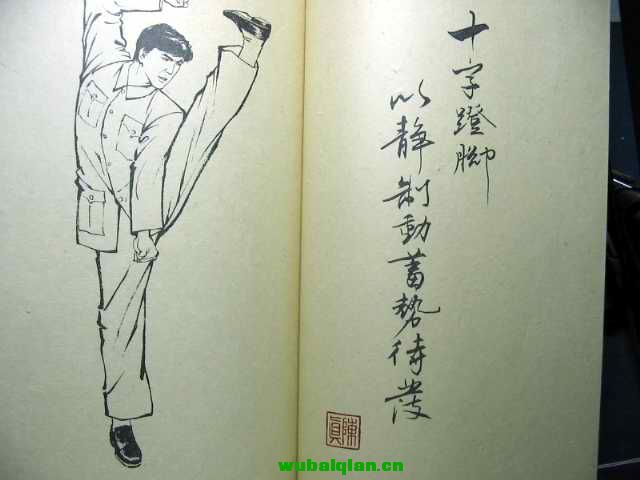 十字蹬脚
以静制動蓄势待发
陳真
wubaiqian.cn